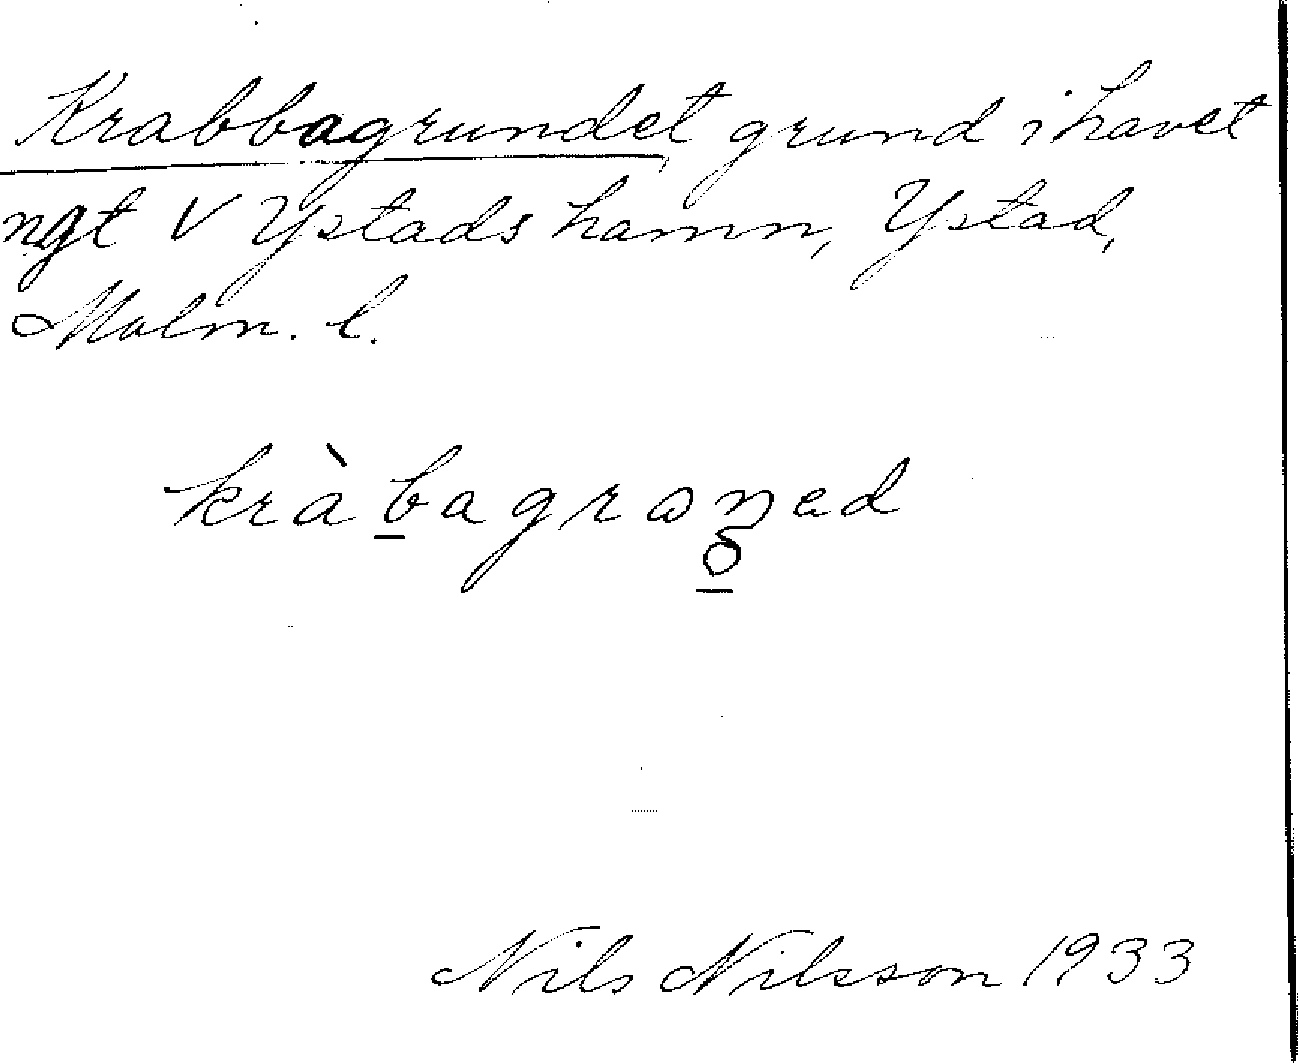 Krabbagrundet, grund i havet
ngt V Ystads hamn, Ystad,
Malm. l.
kràb̲agrɷn̥̲ed
Nils Nilsson 1933